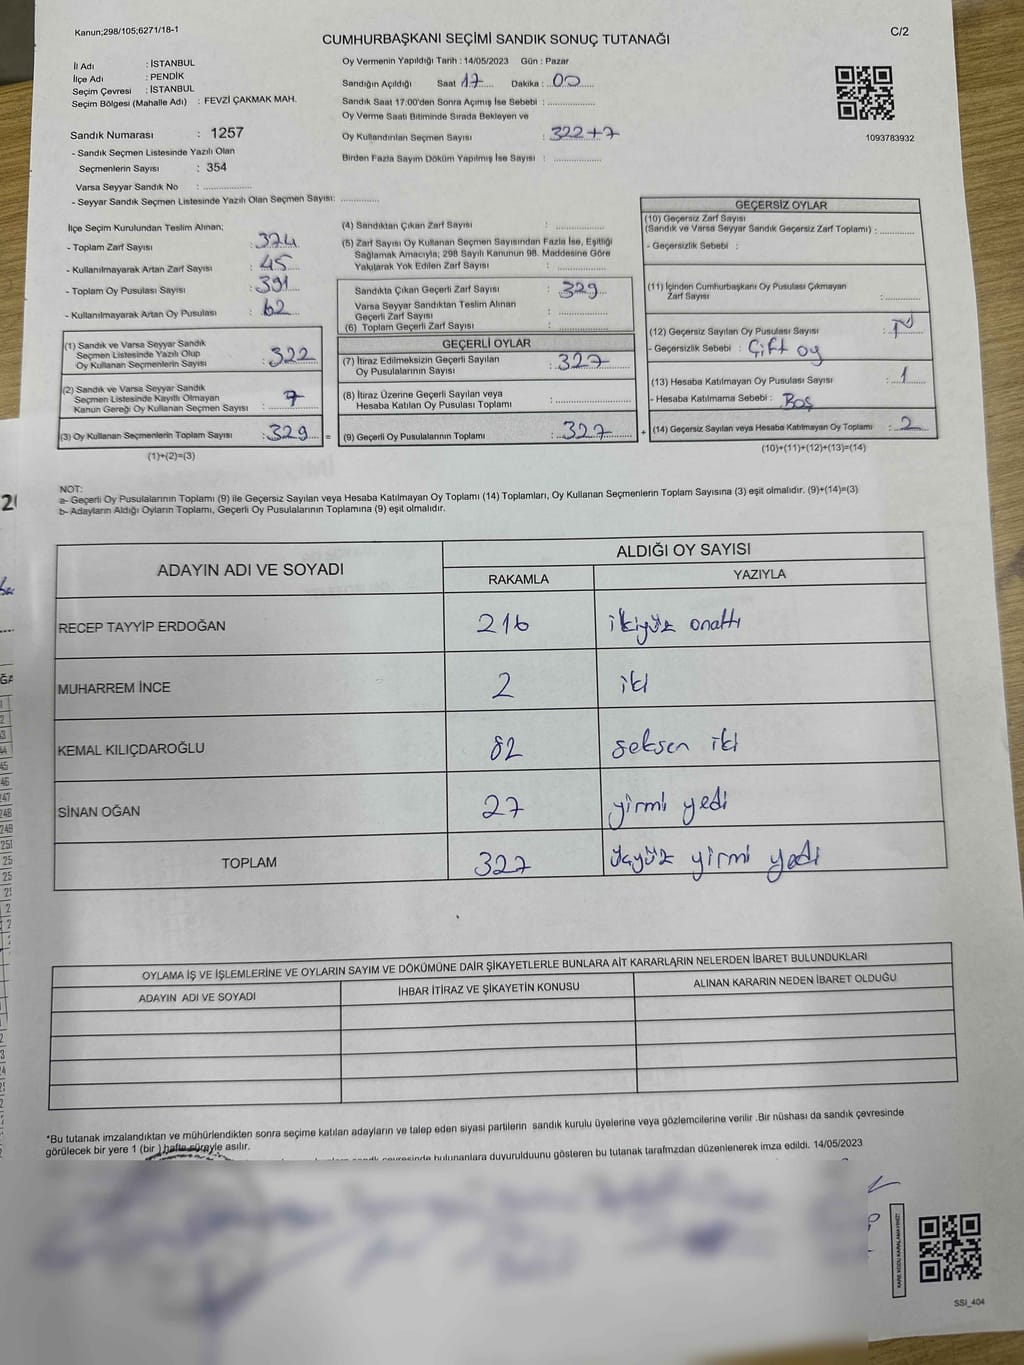 Kanun;298/105;6271/18-1
C/2
CUMHURBAŞKANI SEÇİMİ SANDIK SONUÇ TUTANAĞI
İl Adı : İSTANBUL
İlçe Adı : PENDİK
Seçim Çevresi : İSTANBUL
Seçim Bölgesi (Mahalle Adı) : FEVZİ ÇAKMAK MAH.
Sandık Numarası : 1257
- Sandık Seçmen Listesinde Yazılı Olan
Seçmenlerin Sayısı : 354
Varsa Seyyar Sandık No : ................
- Seyyar Sandık Seçmen Listesinde Yazılı Olan Seçmen Sayısı: .............
Oy Vermenin Yapıldığı Tarih : 14/05/2023 Gün : Pazar
Sandığın Açıldığı Saat 17 Dakika : 00
Sandık Saat 17:00'den Sonra Açımış İse Sebebi : ................
Oy Verme Saati Bitiminde Sırada Bekleyen ve
Oy Kullandırılan Seçmen Sayısı : 322+7
Birden Fazla Sayım Döküm Yapılmış İse Sayısı : ................
1093783932
İlçe Seçim Kurulundan Teslim Alınan;
- Toplam Zarf Sayısı : 374
- Kullanılmayarak Artan Zarf Sayısı : 45
- Toplam Oy Pusulası Sayısı : 391
- Kullanılmayarak Artan Oy Pusulası : 62
(1) Sandık ve Varsa Seyyar Sandık
Seçmen Listesinde Yazılı Olup
Oy Kullanan Seçmenlerin Sayısı : 322
(2) Sandık ve Varsa Seyyar Sandık
Seçmen Listesinde Kayıtlı Olmayan
Kanun Gereği Oy Kullanan Seçmen Sayısı : 7
(3) Oy Kullanan Seçmenlerin Toplam Sayısı : 329 =
(1)+(2)=(3)
(4) Sandıktan Çıkan Zarf Sayısı : ................
(5) Zarf Sayısı Oy Kullanan Seçmen Sayısından Fazla İse, Eşitliği
Sağlamak Amacıyla; 298 Sayılı Kanunun 98. Maddesine Göre
Yakılarak Yok Edilen Zarf Sayısı : ................
Sandıkta Çıkan Geçerli Zarf Sayısı : 329
Varsa Seyyar Sandıktan Teslim Alınan
Geçerli Zarf Sayısı : ................
(6) Toplam Geçerli Zarf Sayısı : ................
GEÇERLİ OYLAR
(7) İtiraz Edilmeksizin Geçerli Sayılan
Oy Pusulalarının Sayısı : 327
(8) İtiraz Üzerine Geçerli Sayılan veya
Hesaba Katılan Oy Pusulası Toplamı : ................
(9) Geçerli Oy Pusulalarının Toplamı : 327 +
GEÇERSİZ OYLAR
(10) Geçersiz Zarf Sayısı
(Sandık ve Varsa Seyyar Sandık Geçersiz Zarf Toplamı) : ............
- Geçersizlik Sebebi :
(11) İçinden Cumhurbaşkanı Oy Pusulası Çıkmayan
Zarf Sayısı : ............
(12) Geçersiz Sayılan Oy Pusulası Sayısı :
- Geçersizlik Sebebi : Çift oy
(13) Hesaba Katılmayan Oy Pusulası Sayısı : 1
- Hesaba Katılmama Sebebi : Boş
(14) Geçersiz Sayılan veya Hesaba Katılmayan Oy Toplamı : 2
(10)+(11)+(12)+(13)=(14)
NOT:
a- Geçerli Oy Pusulalarının Toplamı (9) ile Geçersiz Sayılan veya Hesaba Katılmayan Oy Toplamı (14) Toplamları, Oy Kullanan Seçmenlerin Toplam Sayısına (3) eşit olmalıdır. (9)+(14)=(3)
b- Adayların Aldığı Oyların Toplamı, Geçerli Oy Pusulalarının Toplamına (9) eşit olmalıdır.
ADAYIN ADI VE SOYADI
ALDIĞI OY SAYISI
RAKAMLA YAZIYLA
RECEP TAYYİP ERDOĞAN 216 ikiyüz onaltı
MUHARREM İNCE 2 iki
KEMAL KILIÇDAROĞLU 82 seksen iki
SİNAN OĞAN 27 yirmi yedi
TOPLAM 327 üçyüz yirmi yedi
OYLAMA İŞ VE İŞLEMLERİNE VE OYLARIN SAYIM VE DÖKÜMÜNE DAİR ŞİKAYETLERLE BUNLARA AİT KARARLARIN NELERDEN İBARET BULUNDUKLARI
ADAYIN ADI VE SOYADI İHBAR İTİRAZ VE ŞİKAYETİN KONUSU ALINAN KARARIN NEDEN İBARET OLDUĞU
*Bu tutanak imzalandıktan ve mühürlendikten sonra seçime katılan adayların ve talep eden siyasi partilerin sandık kurulu üyelerine veya gözlemcilerine verilir .Bir nüshası da sandık çevresinde
görülecek bir yere 1 (bir ) hafta süreyle asılır.
çevresinde bulunanlara duyurulduunu gösteren bu tutanak tarafımzdan düzenlenerek imza edildi. 14/05/2023
KARE KODU KARALAMAYINIZ!
SSI_404